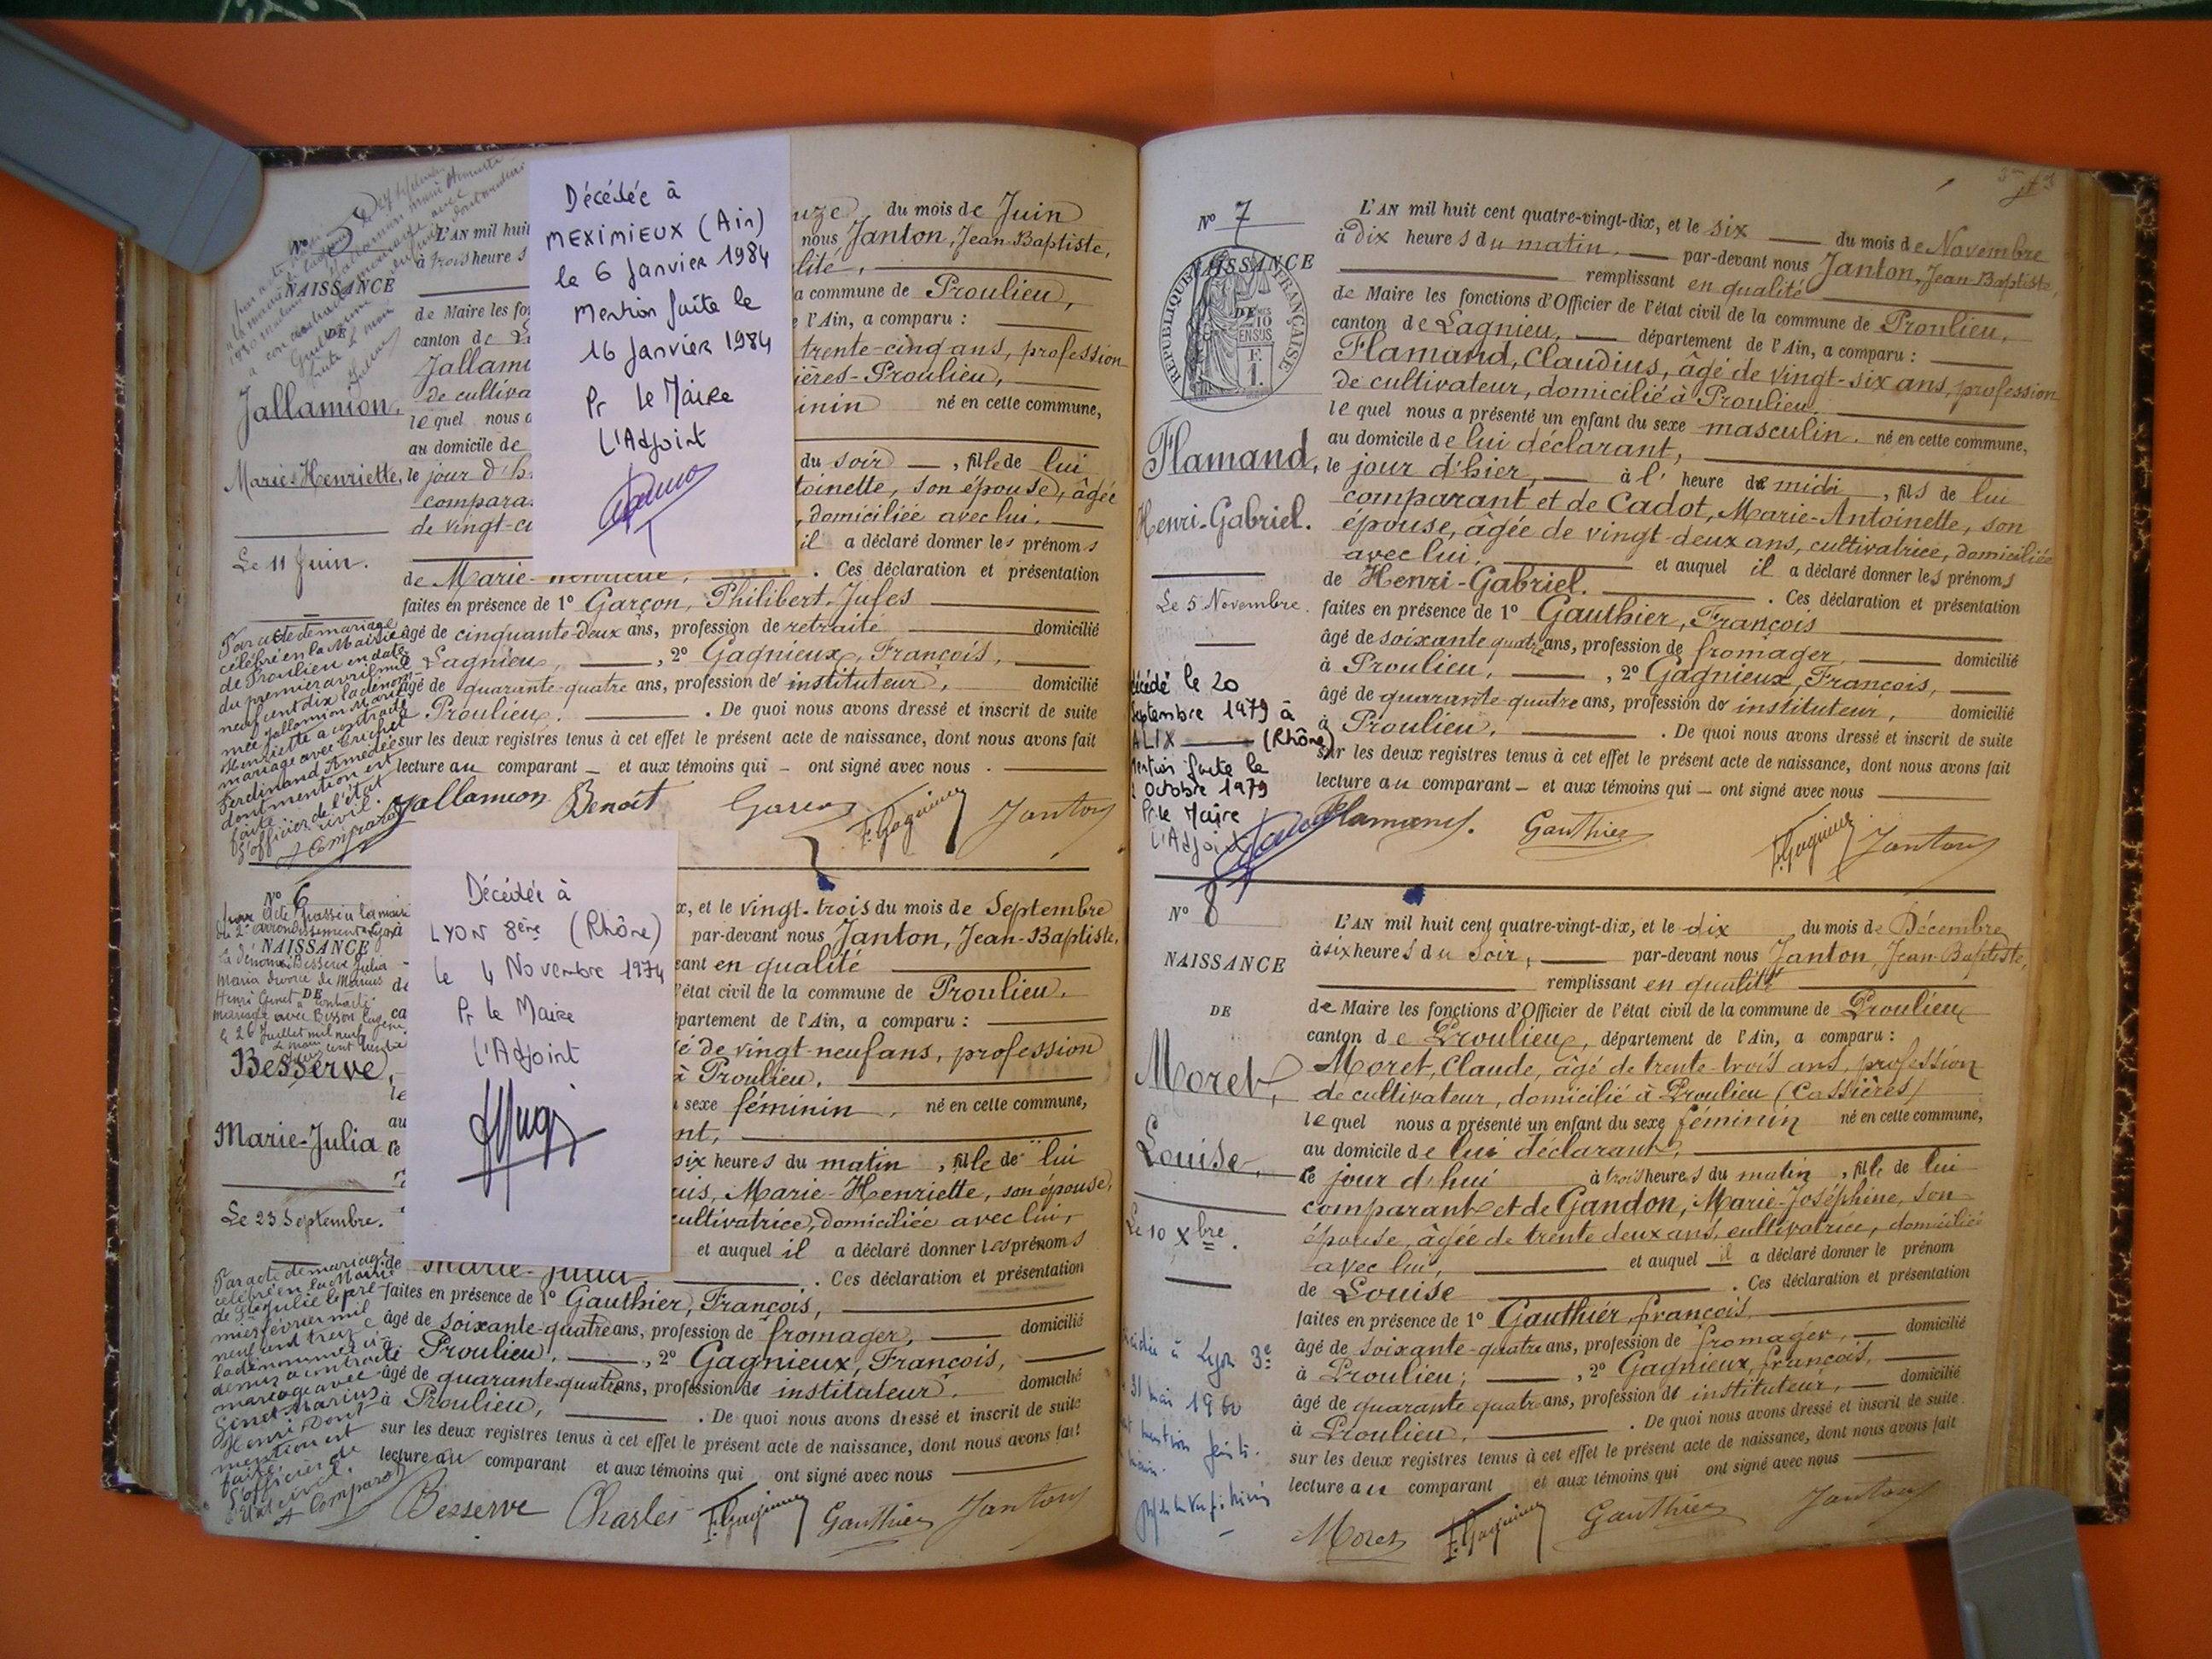 N° 5
NAISSANCE
DE
Jallamion,
Marie-Henriette,
Le 11 Juin.
Par acte de mariage
célébré en la Mairie
de Proulieu en date
du premier avril mil
neuf cent dix la dénom-
mée Jallamion Marie
Henriette a contracté
mariage avec
Ferdinand Amédée
dont mention est
faite.
L'officier de l'état
civil.
L'AN mil huit
à trois heures
de Maire les fo
canton de
Jallami
de cultiva
lequel nous
au domicile de
le jour d'h
compara
de vingt-ci
Décédée à
MEXIMIEUX (Ain)
le 6 Janvier 1984
Mention faite le
16 Janvier 1984
Pr Le Maire
L'Adjoint
uze du mois de Juin
nous Janton, Jean-Baptiste,
lité,
a commune de Proulieu,
e l'Ain, a comparu :
trente-cinq ans, profession
ières-Proulieu,
inin né en cette commune,
du soir, fille de lui
toinette, son épouse, âgée
, domiciliée avec lui.
il a déclaré donner les prénoms
de Marie-Henriette, . Ces déclaration et présentation
faites en présence de 1° Garçon, Philibert-Jules
âgé de cinquante-deux ans, profession de retraité domicilié
à Lagnieu, , 2° Gagnieux, François,
âgé de quarante-quatre ans, profession de instituteur, domicilié
à Proulieu. . De quoi nous avons dressé et inscrit de suite
sur les deux registres tenus à cet effet le présent acte de naissance, dont nous avons fait
lecture au comparant – et aux témoins qui – ont signé avec nous .
Jallamion Benoît Garçon F. Gagnieux Janton
N° 6
NAISSANCE
DE
Besserve,
Marie-Julia
Le 23 Septembre.
Par acte de mariage
célébré en la Mairie
de Ste Julie le pre-
mier février mil
neuf cent treize
la dénommée ci-
dessus a contracté
mariage avec
Genet Marius
Henri Dont
mention est
faite.
L'officier de
l'Etat civil.
Décédée à
LYON 8ème (Rhône)
le 4 Novembre 1974
Pr le Maire
L'Adjoint
x, et le vingt-trois du mois de Septembre
par-devant nous Janton, Jean-Baptiste,
sant en qualité
l'état civil de la commune de Proulieu,
partement de l'Ain, a comparu :
é de vingt-neuf ans, profession
à Proulieu,
sexe féminin, né en cette commune,
nt,
six heures du matin, fille de lui
uis, Marie-Henriette, son épouse,
cultivatrice, domiciliée avec lui,
et auquel il a déclaré donner les prénoms
Marie-Julia, . Ces déclaration et présentation
faites en présence de 1° Gauthier, François,
âgé de soixante-quatre ans, profession de fromager, domicilié
à Proulieu, , 2° Gagnieux, François,
âgé de quarante-quatre ans, profession de instituteur, domicilié
à Proulieu, . De quoi nous avons dressé et inscrit de suite
sur les deux registres tenus à cet effet le présent acte de naissance, dont nous avons fait
lecture au comparant et aux témoins qui ont signé avec nous
Besserve Charles F. Gagnieux Gauthier Janton
N° 7
NAISSANCE
DE
RÉPUBLIQUE FRANÇAISE
Flamand,
Henri-Gabriel.
Le 5 Novembre.
écédé le 20
Septembre 1979 à
ALIX (Rhône)
Mention faite le
Octobre 1979
Pr le Maire
L'Adjoint
L'AN mil huit cent quatre-vingt-dix, et le six du mois de Novembre
à dix heures du matin, par-devant nous Janton, Jean-Baptiste,
remplissant en qualité
de Maire les fonctions d'Officier de l'état civil de la commune de Proulieu,
canton de Lagnieu, département de l'Ain, a comparu :
Flamand, Claudius, âgé de vingt-six ans, profession
de cultivateur, domicilié à Proulieu.
lequel nous a présenté un enfant du sexe masculin, né en cette commune,
au domicile de lui déclarant,
le jour d'hier, à l' heure de midi, fils de lui
comparant et de Cadot, Marie-Antoinette, son
épouse, âgée de vingt-deux ans, cultivatrice, domiciliée
avec lui, et auquel il a déclaré donner les prénoms
de Henri-Gabriel. . Ces déclaration et présentation
faites en présence de 1° Gauthier, François
âgé de soixante quatre ans, profession de fromager, domicilié
à Proulieu, , 2° Gagnieux, François,
âgé de quarante-quatre ans, profession de instituteur, domicilié
à Proulieu, . De quoi nous avons dressé et inscrit de suite
sur les deux registres tenus à cet effet le présent acte de naissance, dont nous avons fait
lecture au comparant – et aux témoins qui – ont signé avec nous
Flamand. Gauthier F. Gagnieux Janton
N° 8
NAISSANCE
DE
Moret,
Louise,
Le 10 Xbre.
Lyon 3e
31 mai 1960
mention faite.
L'AN mil huit cent quatre-vingt-dix, et le dix du mois de Décembre
à six heures du Soir, par-devant nous Janton, Jean Baptiste,
remplissant en qualité
de Maire les fonctions d'Officier de l'état civil de la commune de Proulieu
canton de Proulieu, département de l'Ain, a comparu :
Moret, Claude, âgé de trente-trois ans, profession
de cultivateur, domicilié à Proulieu (Cassières)
lequel nous a présenté un enfant du sexe féminin né en cette commune,
au domicile de lui déclarant,
le jour d'hui à trois heures du matin, fille de lui
comparant et de Gandon, Marie-Joséphine, son
épouse, âgée de trente deux ans, cultivatrice, domiciliée
avec lui, et auquel il a déclaré donner le prénom
de Louise . Ces déclaration et présentation
faites en présence de 1° Gauthier, françois,
âgé de soixante-quatre ans, profession de fromager, domicilié
à Proulieu, , 2° Gagnieux, françois,
âgé de quarante quatre ans, profession de instituteur, domicilié
à Proulieu. . De quoi nous avons dressé et inscrit de suite
sur les deux registres tenus à cet effet le présent acte de naissance, dont nous avons fait
lecture au comparant et aux témoins qui ont signé avec nous
Moret F. Gagnieux Gauthier Janton